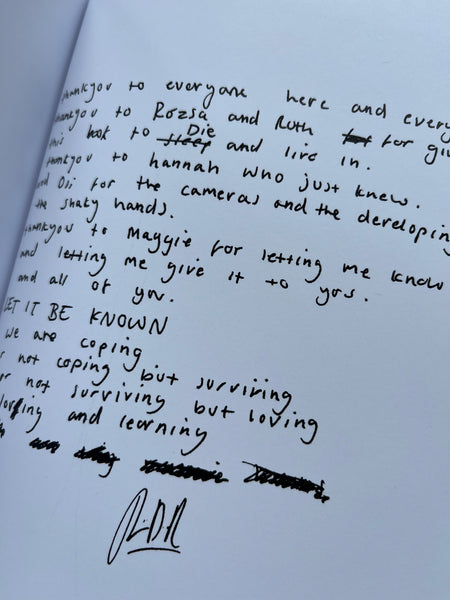 thankyou to everyone here and every
thankyou to Rozsa and Ruth for giv
this book to Die and live in.
thankyou to hannah who just knew.
and Osi for the cameras and the developing
the shaky hands.
thankyou to Maggie for letting me know
and letting me give it to you.
and all of you.
LET IT BE KNOWN
we are coping
r not coping but surviving
or not surviving but loving
loving and learning